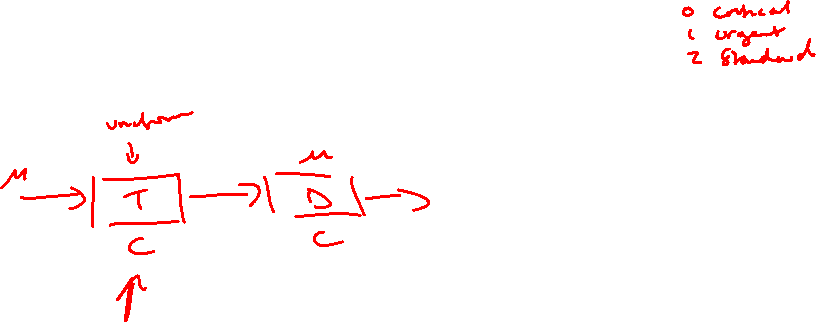 0 critical
1 urgent
2 Standard
μ
T
C
μ
D
C